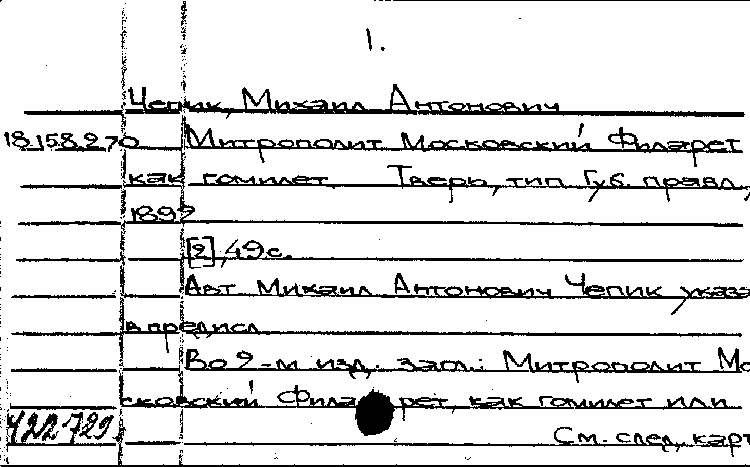 1.
Чепик, Михаил Антонович
18.158.2.70 Митрополит Московский Филарет
как гомилет. Тверь, тип. Губ. правл.,
189?
[2], 49 с.
Авт. Михаил Антонович Чепик указа
в предисл.
Во 2-м изд. загл.: Митрополит Мо
сковский Филарет, как гомилет или
См. след. карт